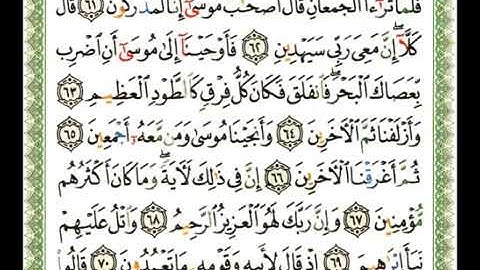 فَلَمَّا تَرَٰٓءَا ٱلۡجَمۡعَانِ قَالَ أَصۡحَٰبُ مُوسَىٰٓ إِنَّا لَمُدۡرَكُونَ ٦١ قَالَ
كَلَّآۖ إِنَّ مَعِيَ رَبِّي سَيَهۡدِينِ ٦٢ فَأَوۡحَيۡنَآ إِلَىٰ مُوسَىٰٓ أَنِ ٱضۡرِب
بِّعَصَاكَ ٱلۡبَحۡرَۖ فَٱنفَلَقَ فَكَانَ كُلُّ فِرۡقٖ كَٱلطَّوۡدِ ٱلۡعَظِيمِ ٦٣
وَأَزۡلَفۡنَا ثَمَّ ٱلۡأٓخَرِينَ ٦٤ وَأَنجَيۡنَا مُوسَىٰ وَمَن مَّعَهُۥٓ أَجۡمَعِينَ ٦٥
ثُمَّ أَغۡرَقۡنَا ٱلۡأٓخَرِينَ ٦٦ إِنَّ فِي ذَٰلِكَ لَأٓيَةٗۖ وَمَا كَانَ أَكۡثَرُهُم
مُّؤۡمِنِينَ ٦٧ وَإِنَّ رَبَّكَ لَهُوَ ٱلۡعَزِيزُ ٱلرَّحِيمُ ٦٨ وَٱتۡلُ عَلَيۡهِمۡ
نَبَأَ إِبۡرَٰهِيمَ ٦٩ إِذۡ قَالَ لِأَبِيهِ وَقَوۡمِهِۦ مَا تَعۡبُدُونَ ٧٠ قَالُواْ